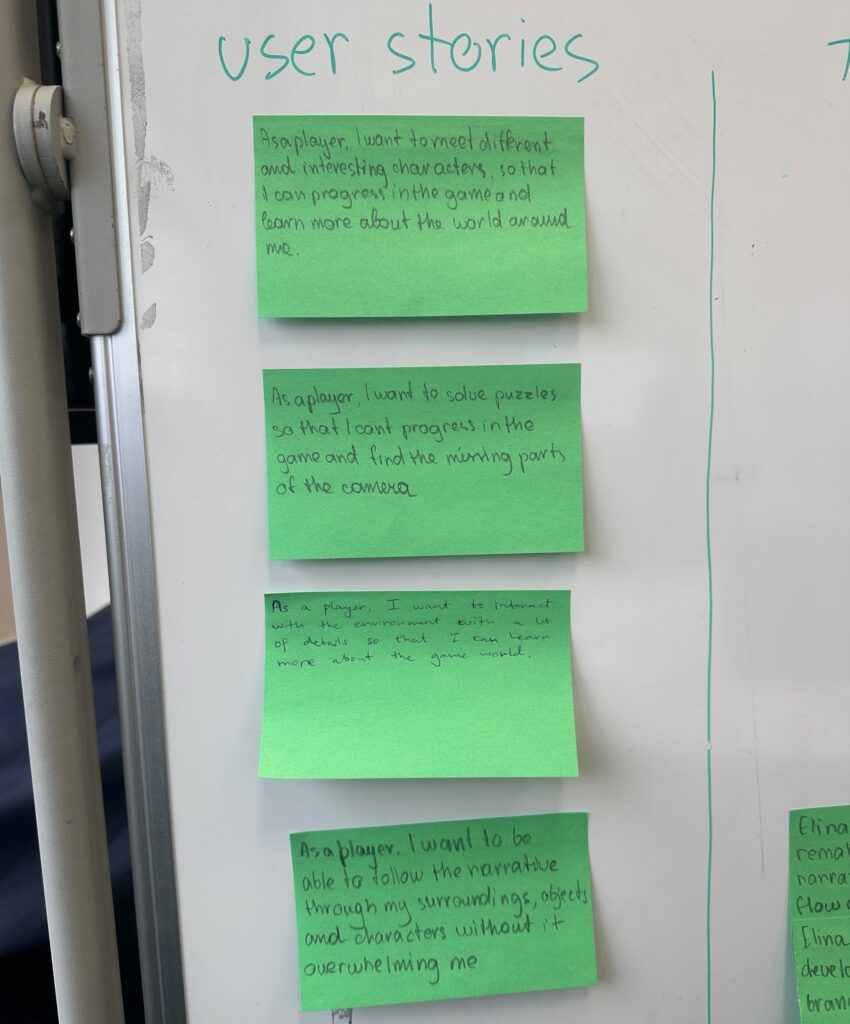 user stories
As a player, I want to meet different
and interesting characters, so that
I can progress in the game and
learn more about the world around
me.
As a player, I want to solve puzzles
so that I cant progress in the
game and find the missing parts
of the camera
As a player, I want to interact
with the environment with a lot
of details so that I can learn
more about the game world.
As a player, I want to be
able to follow the narrative
through my surroundings, objects
and characters without it
overwhelming me
Elina
rema
narra
flow
Elina
develo
bran